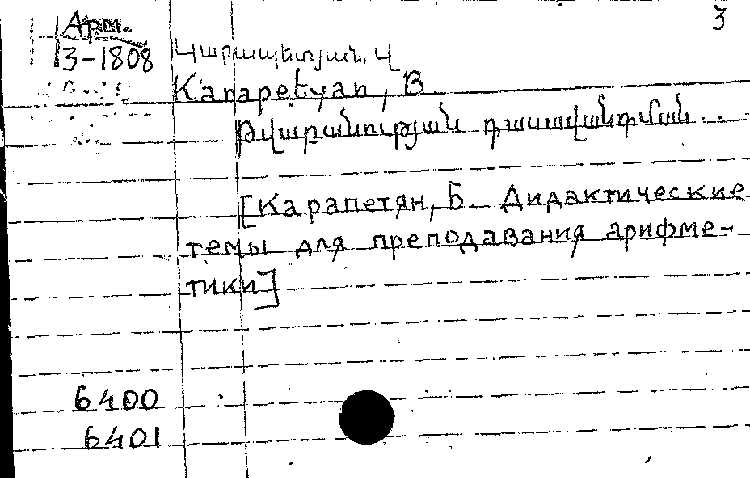 3
Арм.
3-1808
Կարապետյան, Վ
Karapetyan, B
Թվաբանության դասավանդման...
[Карапетян, Б. Дидактические
темы для преподавания арифме-
тики]
6400
6401